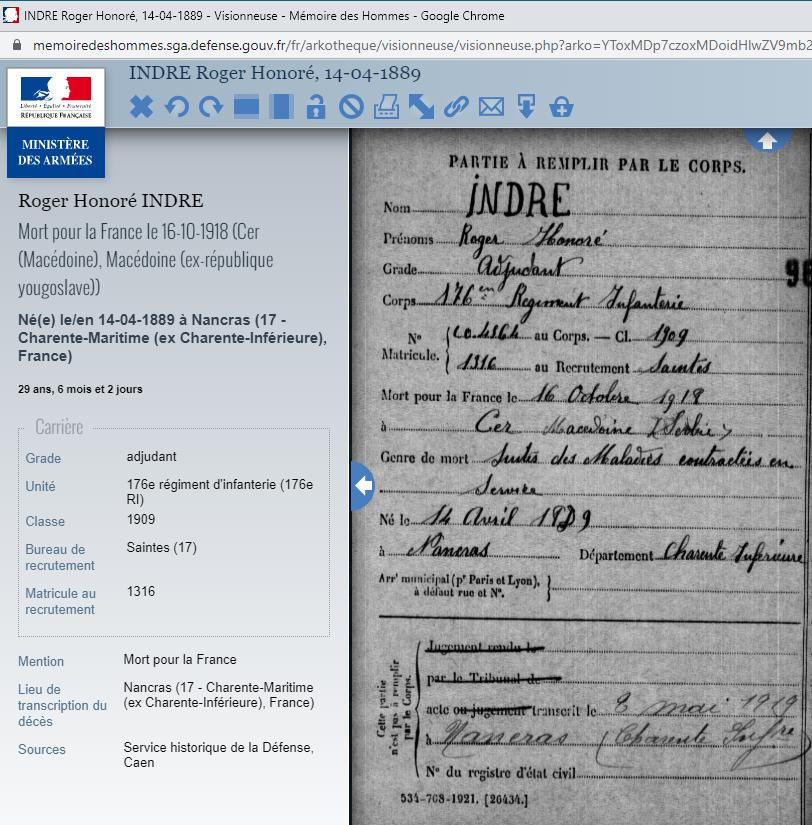 INDRE Roger Honoré, 14-04-1889 - Visionneuse - Mémoire des Hommes - Google Chrome
memoiredeshommes.sga.defense.gouv.fr/fr/arkotheque/visionneuse/visionneuse.php?arko=YToxMDp7czoxMDoidHlwZV9mb2
INDRE Roger Honoré, 14-04-1889
Liberté • Égalité • Fraternité
RÉPUBLIQUE FRANÇAISE
MINISTÈRE
DES ARMÉES
Roger Honoré INDRE
Mort pour la France le 16-10-1918 (Cer
(Macédoine), Macédoine (ex-république
yougoslave))
Né(e) le/en 14-04-1889 à Nancras (17 -
Charente-Maritime (ex Charente-Inférieure),
France)
29 ans, 6 mois et 2 jours
Carrière
Grade adjudant
Unité 176e régiment d'infanterie (176e
RI)
Classe 1909
Bureau de Saintes (17)
recrutement
Matricule au 1316
recrutement
Mention Mort pour la France
Lieu de Nancras (17 - Charente-Maritime
transcription du (ex Charente-Inférieure), France)
décès
Sources Service historique de la Défense,
Caen
PARTIE À REMPLIR PAR LE CORPS.
Nom INDRE
Prénoms Roger Honoré
Grade Adjudant
Corps 176 Regiment Infanterie
N° au Corps. — Cl. 1909
Matricule. 1316 au Recrutement Saintes
Mort pour la France le 16 Octobre 1918
à Cer Macedoine (Serbie)
Genre de mort Suites des Maladies contractées en
Service
Né le 14 Avril 1889
à Nancras Département Charente Inferieure
Arr' municipal (p' Paris et Lyon),
à défaut rue et N°.
Cette partie
n'est pas à remplir
par le Corps.
Jugement rendu le
par le Tribunal de
acte ou jugement transcrit le 8 mai 1919
à Nancras (Charente Infre)
N° du registre d'état civil
534-708-1921. [26434.]